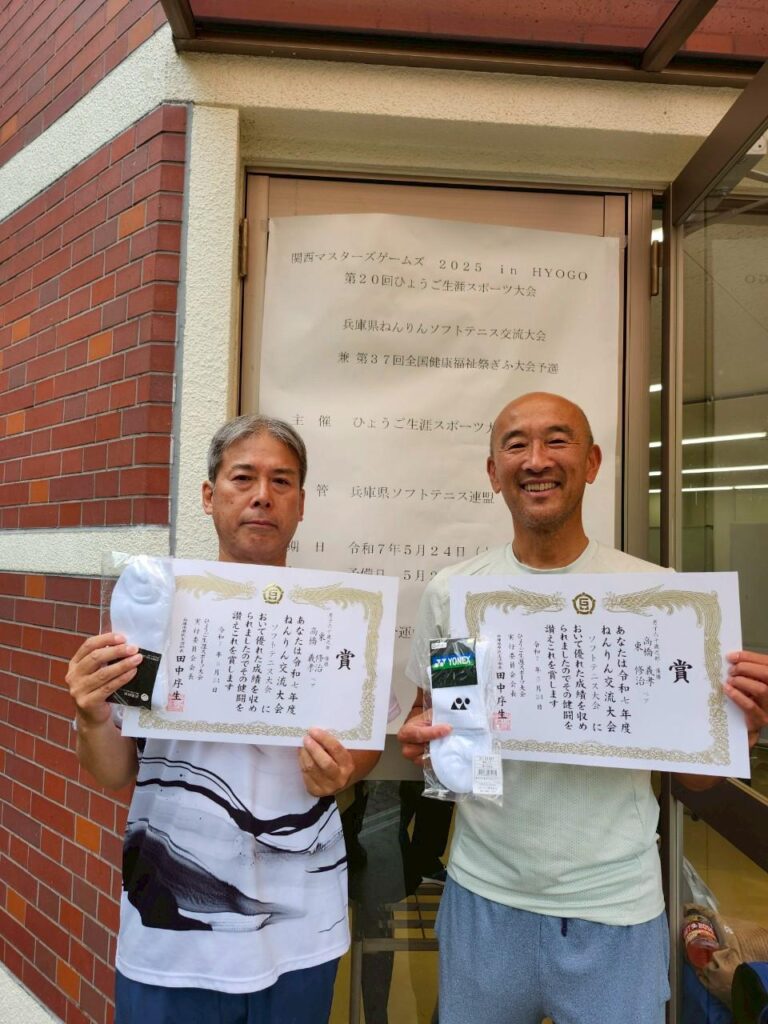 関西マスターズゲームズ 2025 in HYOGO
第20回ひょうご生涯スポーツ大会
兵庫県ねんりんソフトテニス交流大会
兼 第37回全国健康福祉祭ぎふ大会予選
主 催 ひょうご生涯スポーツ大
管 兵庫県ソフトテニス連盟
期 日 令和7年5月24日(
予備日 5月2
賞
東 修治
高橋 義孝
あなたは令和七年度
ねんりん交流大会
ソフトテニス大会 に
おいて優れた成績を収め
られましたのでその健闘を
讃えこれを賞します
実行委員会会長
田中序生
YONEX
賞
高橋 義孝
東 修治 ペア
あなたは令和七年度
ねんりん交流大会
ソフトテニス大会 に
おいて優れた成績を収め
られましたのでその健闘を
讃えこれを賞します
ひょうご生涯スポーツ大会
実行委員会会長
田中序生